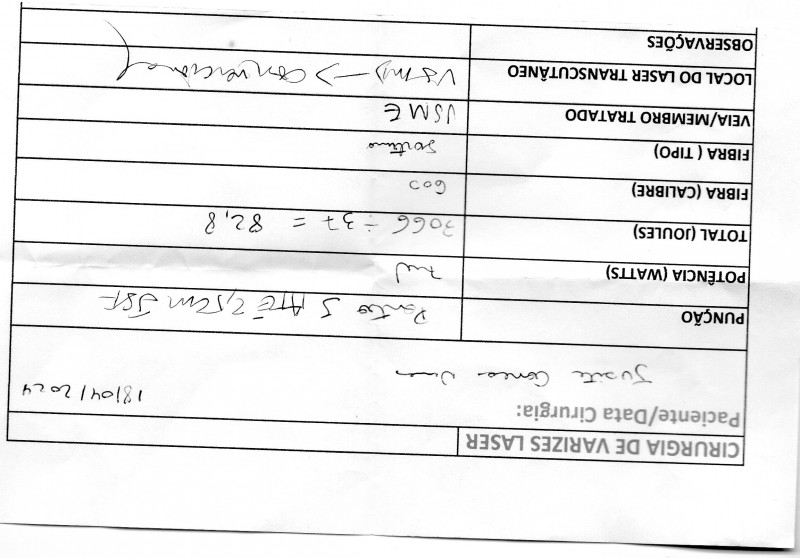 CIRURGIA DE VARIZES LASER
Paciente/Data Cirurgia:
18/04/2024
PUNÇÃO Ponto J ATÉ 2,5cm JSF
POTÊNCIA (WATTS) 7w
TOTAL (JOULES) 3066 ÷ 37 = 82,8
FIBRA (CALIBRE) 600
FIBRA ( TIPO)
VEIA/MEMBRO TRATADO VSME
LOCAL DO LASER TRANSCUTÂNEO VSMD → convencional
OBSERVAÇÕES